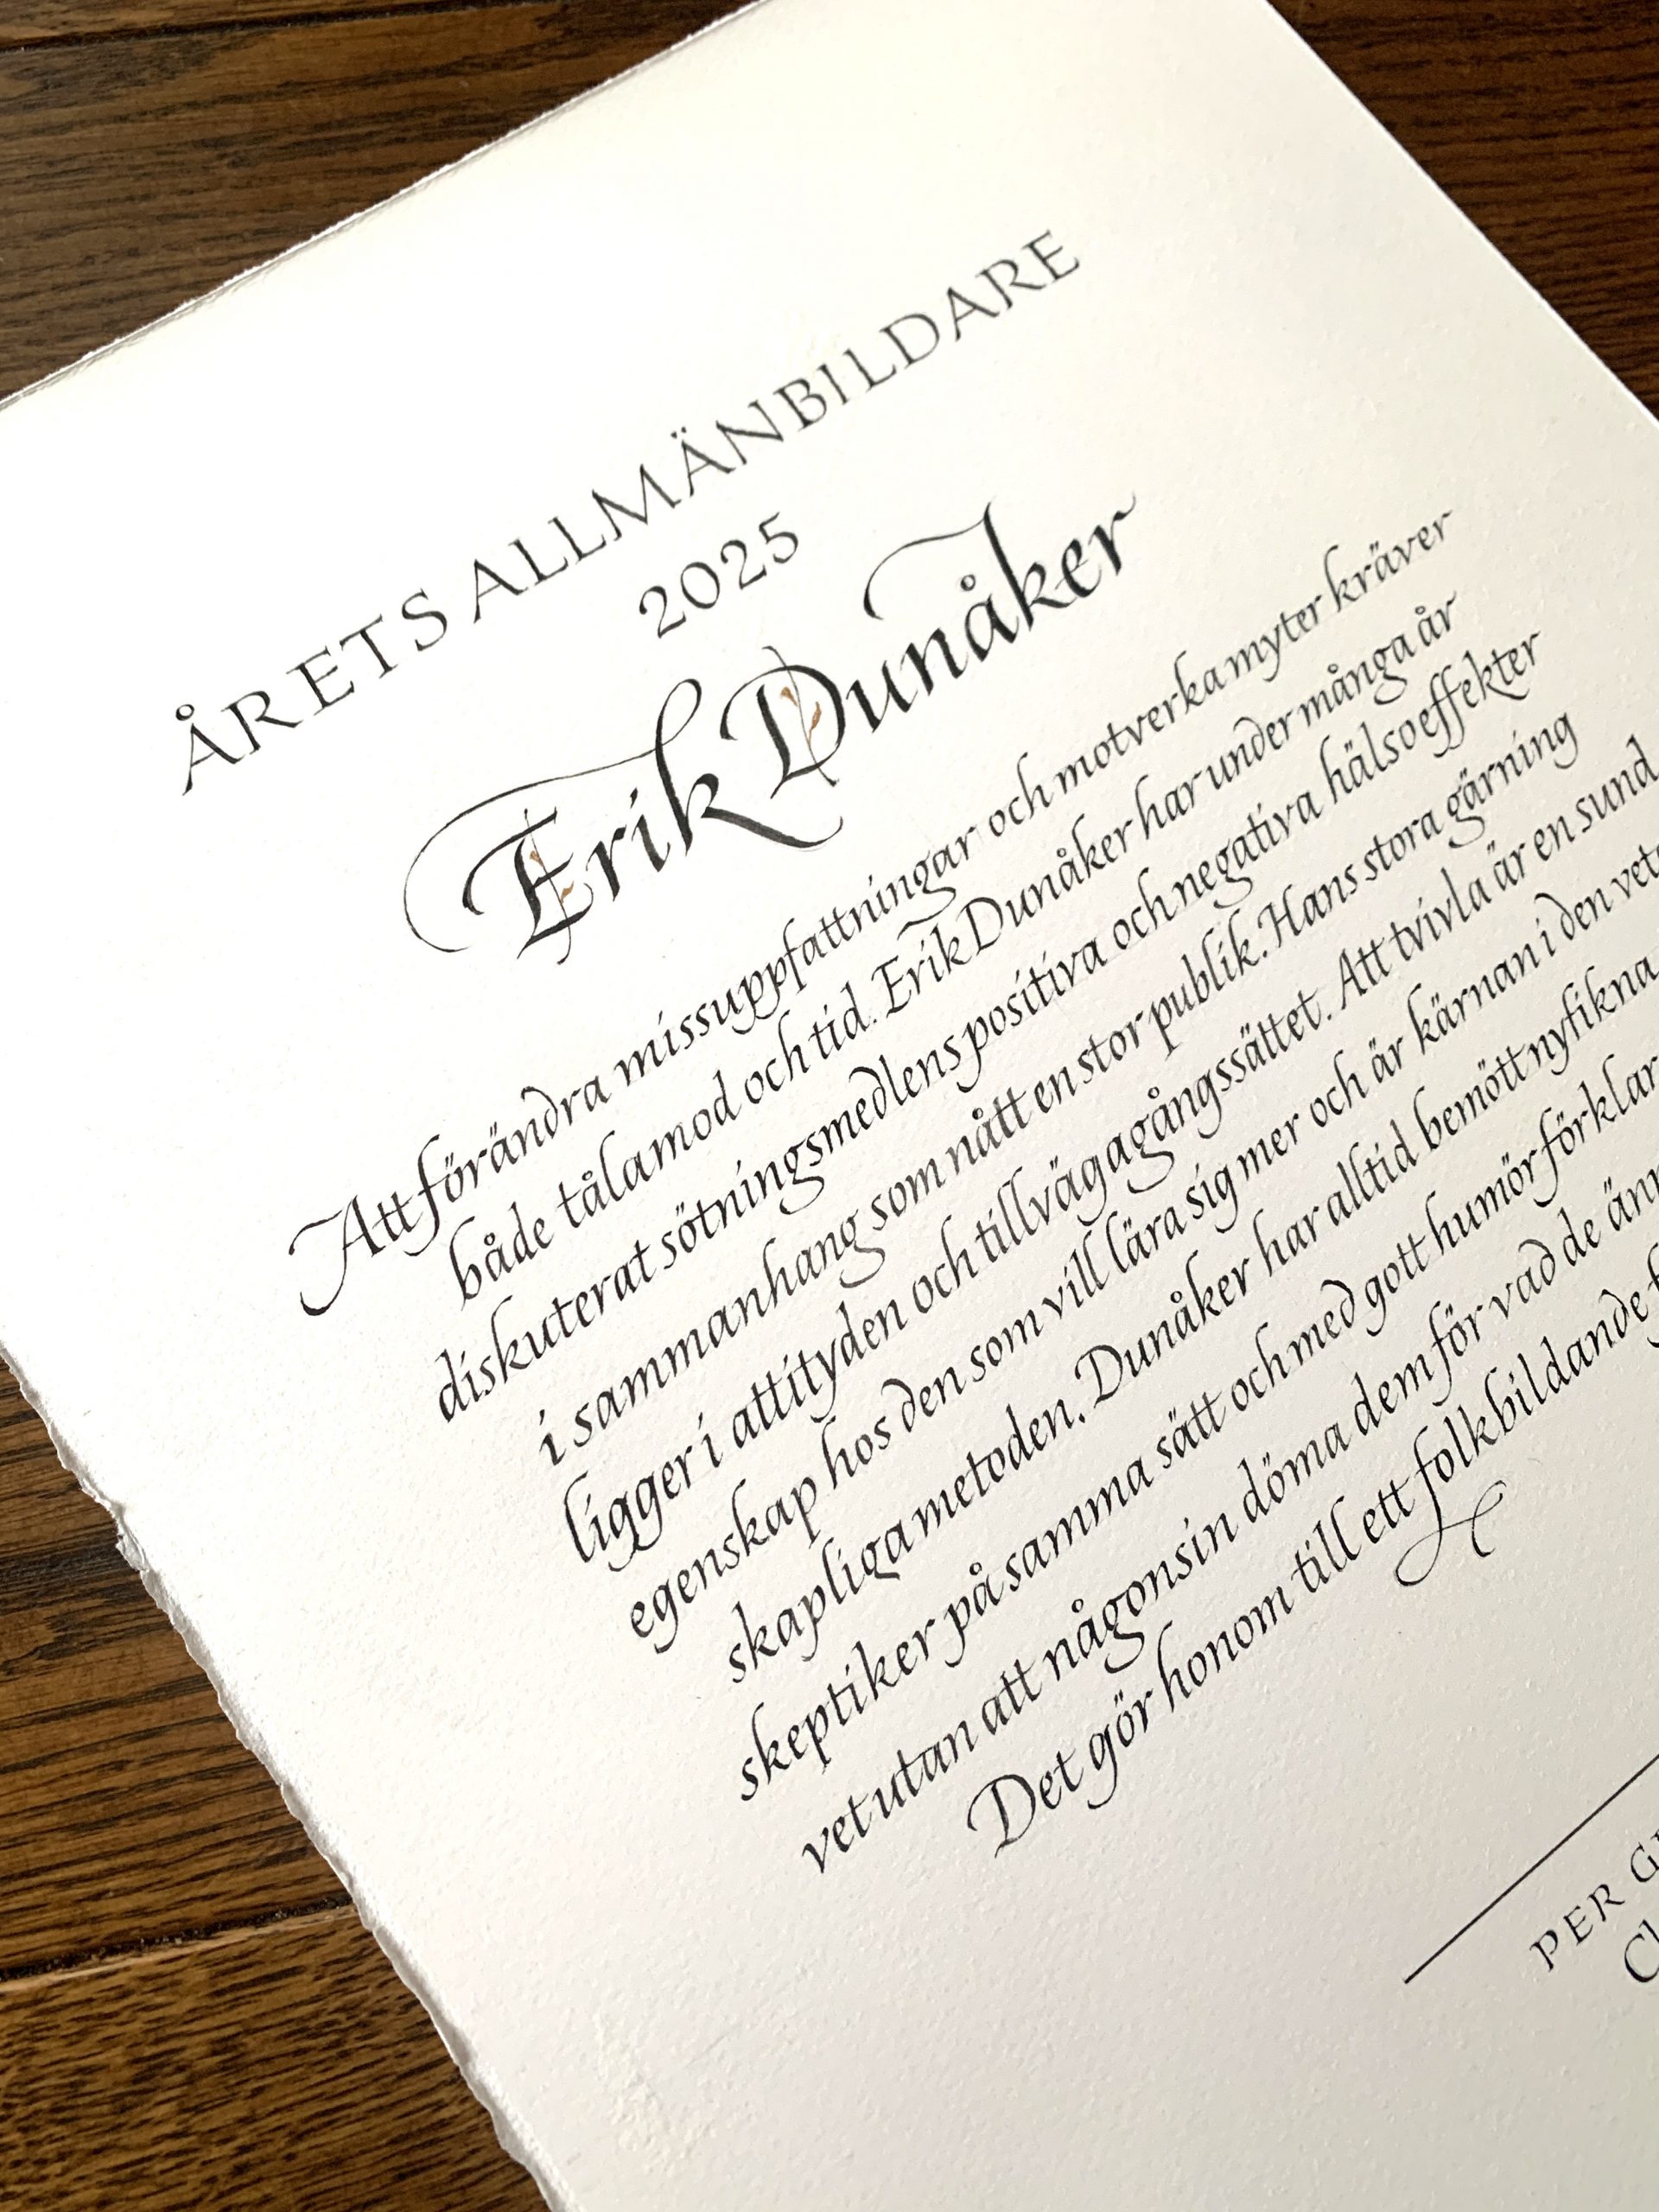 ÅRETS ALLMÄNBILDARE
2025
Erik Dunåker
Att förändra missuppfattningar och motverka myter kräver
både tålamod och tid. Erik Dunåker har under många år
diskuterat sötningsmedlens positiva och negativa hälsoeffekter
i sammanhang som nått en stor publik. Hans stora gärning
ligger i attityden och tillvägagångssättet. Att tvivla är en sund
egenskap hos den som vill lära sig mer och är kärnan i den vet
skapliga metoden. Dunåker har alltid bemött nyfikna
skeptiker på samma sätt och med gott humör förklar
vet utan att någonsin döma dem för vad de änn
Det gör honom till ett folkbildande f
PER G